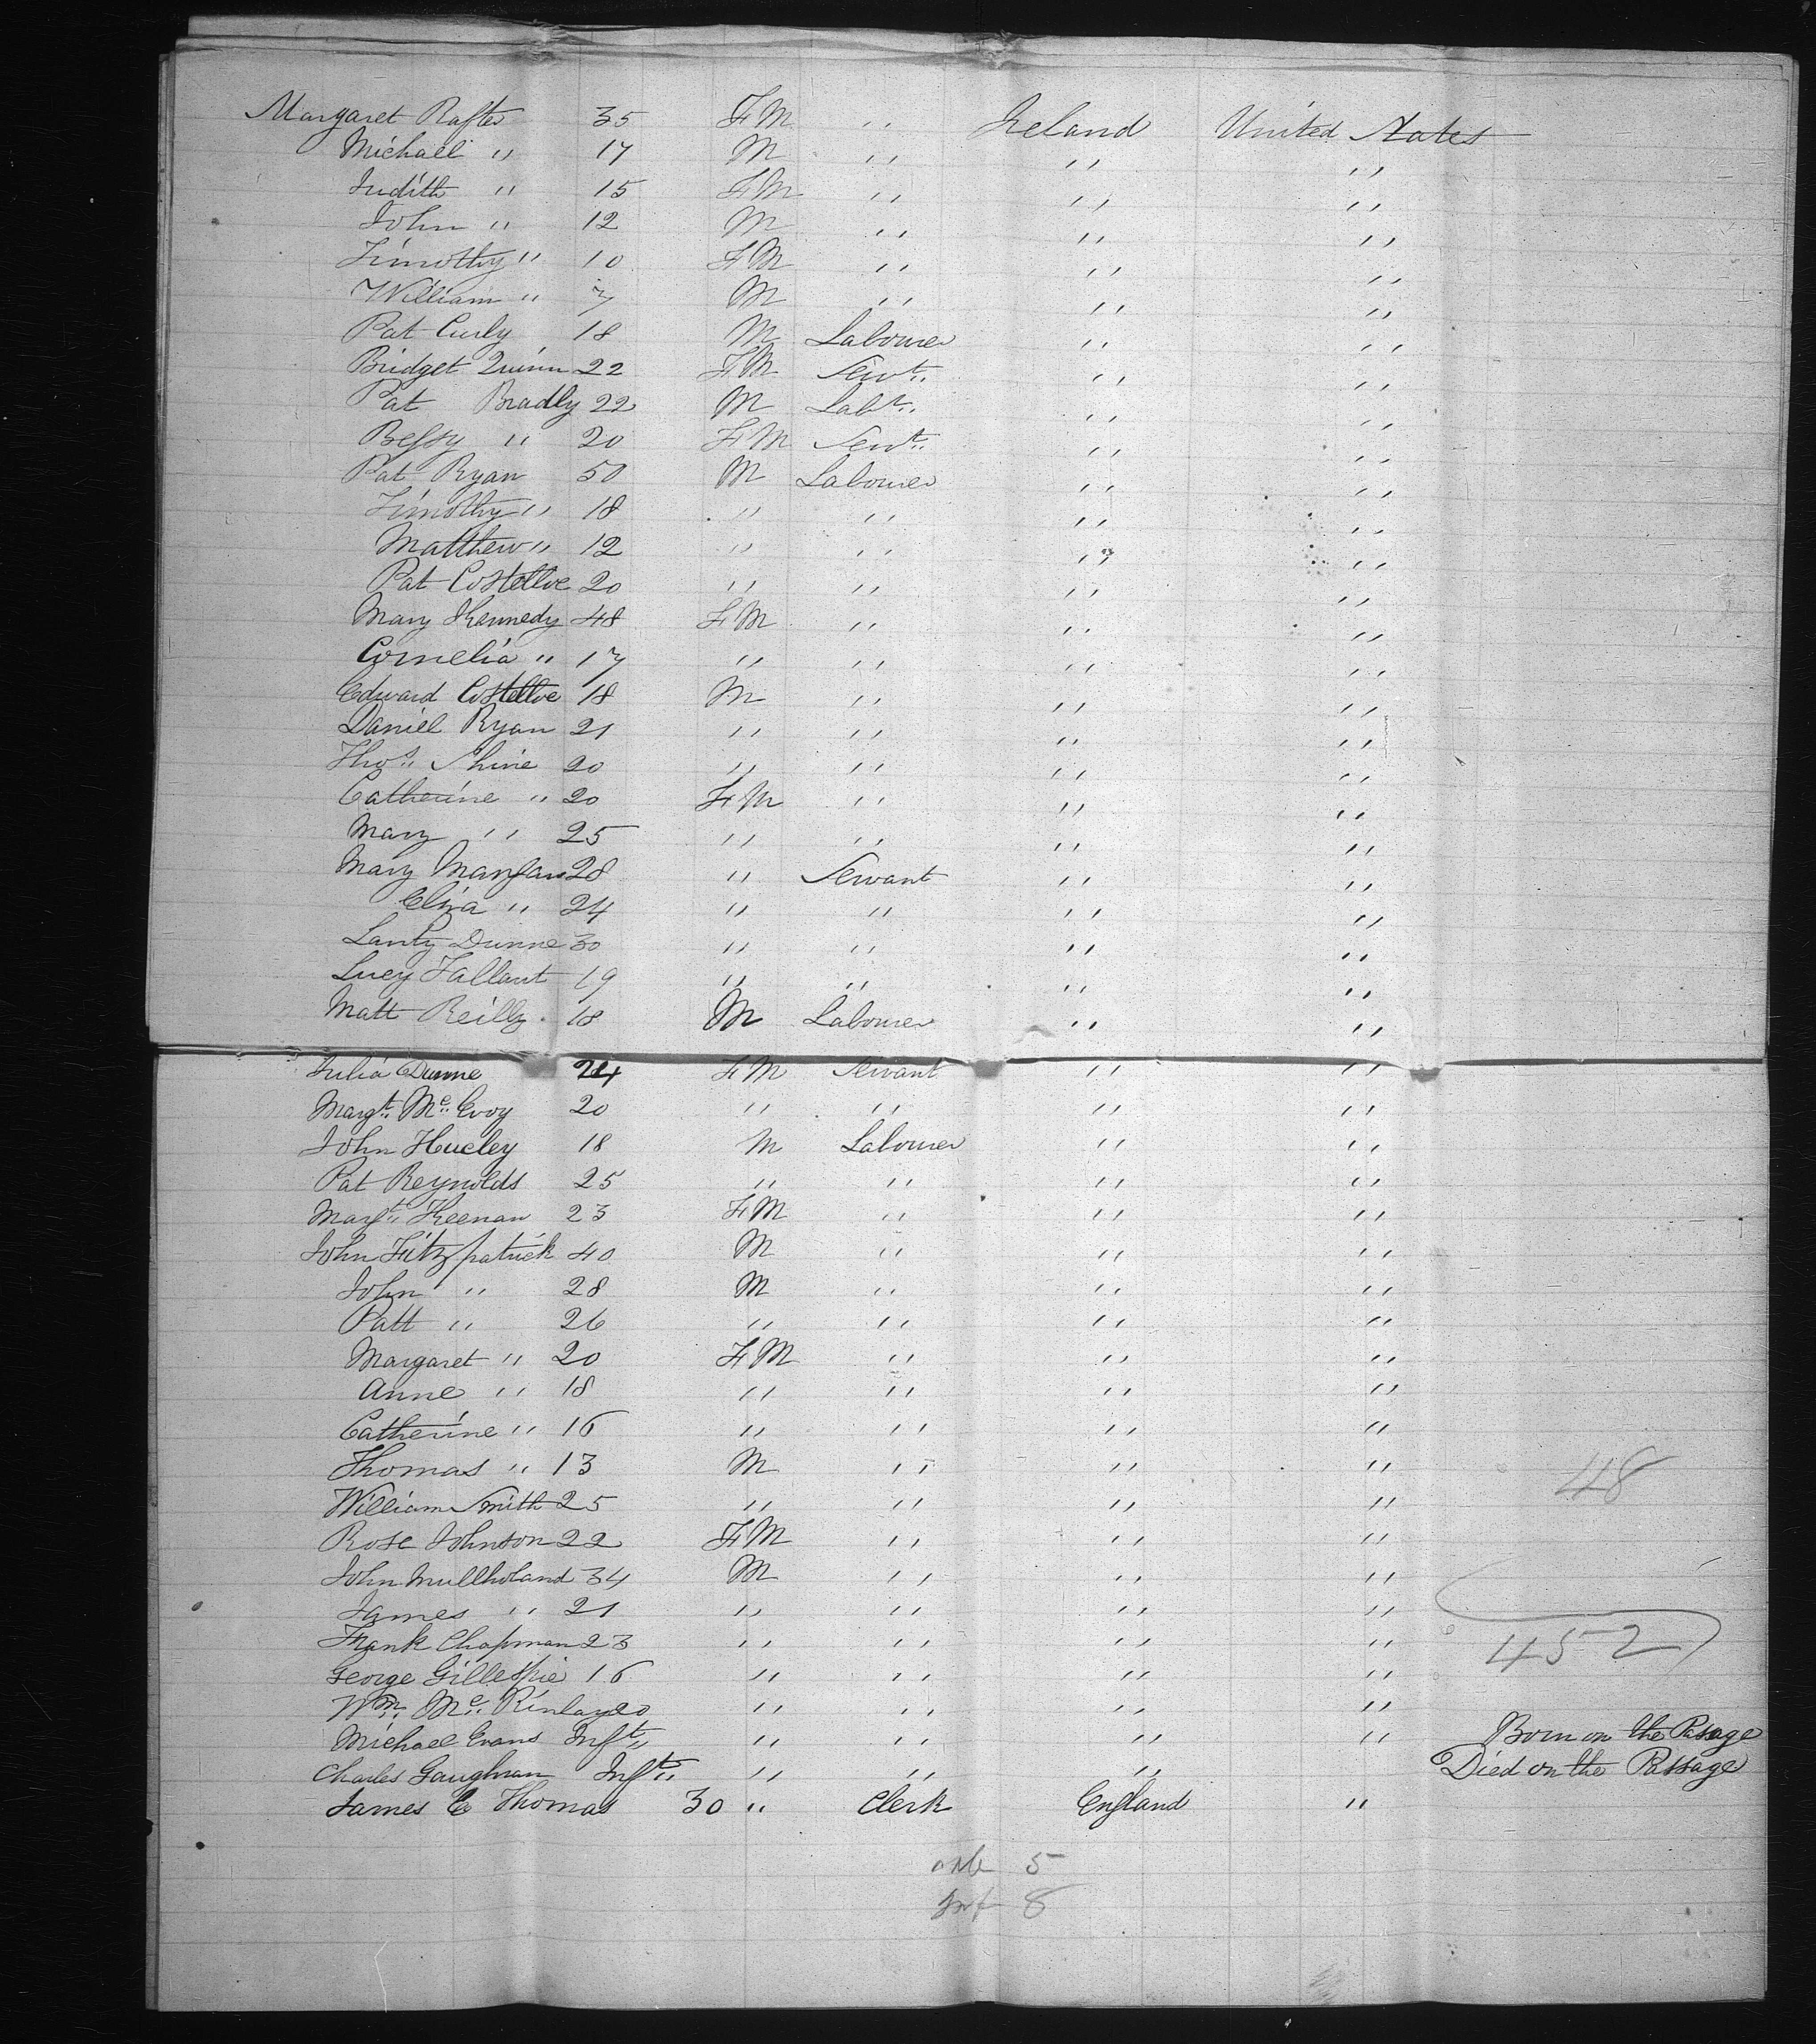 Margaret Rafter 35 FM " Ireland United States
Michael " 17 M " " "
Judith " 15 FM " " "
John " 12 M " " "
Timothy " 10 FM " " "
William " 7 M " " "
Pat Curly 18 M Labourer " "
Bridget Quinn 22 FM Servt " "
Pat Bradly 22 M Labr " "
Bessy " 20 FM Servt " "
Pat Ryan 50 M Labourer " "
Timothy " 18 " " " "
Matthew " 12 " " " "
Pat Costelloe 20 " " " "
Mary Kennedy 48 FM " " "
Cornelia " 17 " " " "
Edward Costelloe 18 M " " "
Daniel Ryan 21 " " " "
Thos Shine 20 " " " "
Catherine " 20 FM " " "
Mary " 25 " " " "
Mary Mangan 28 " Servant " "
Eliza " 24 " " " "
Lanty Dunne 30 " " " "
Lucy Tallant 19 " " " "
Matt Reilly 18 M Labourer " "
Julia Dunne 24 FM Servant " "
Margt Mc Evoy 20 " " " "
John Hucley 18 M Labourer " "
Pat Reynolds 25 " " " "
Margt Keenan 23 FM " " "
John Fitzpatrick 40 M " " "
John " 28 M " " "
Patt " 26 " " " "
Margaret " 20 FM " " "
Anne " 18 " " " "
Catherine " 16 " " " "
Thomas " 13 M " " " 48
William Smith 25 " " " "
Rose Johnson 22 FM " " "
John Mullholand 34 M " " "
James " 21 " " " "
Frank Chapman 23 " " " " 452
George Gillespie 16 " " " "
Wm Mc Kinlay 20 " " " "
Michael Evans Inft " " " " Born on the Passage
Charles Gaughran Inft " " " Died on the Passage
James C Thomas 30 " Clerk England "
5
Inf 8